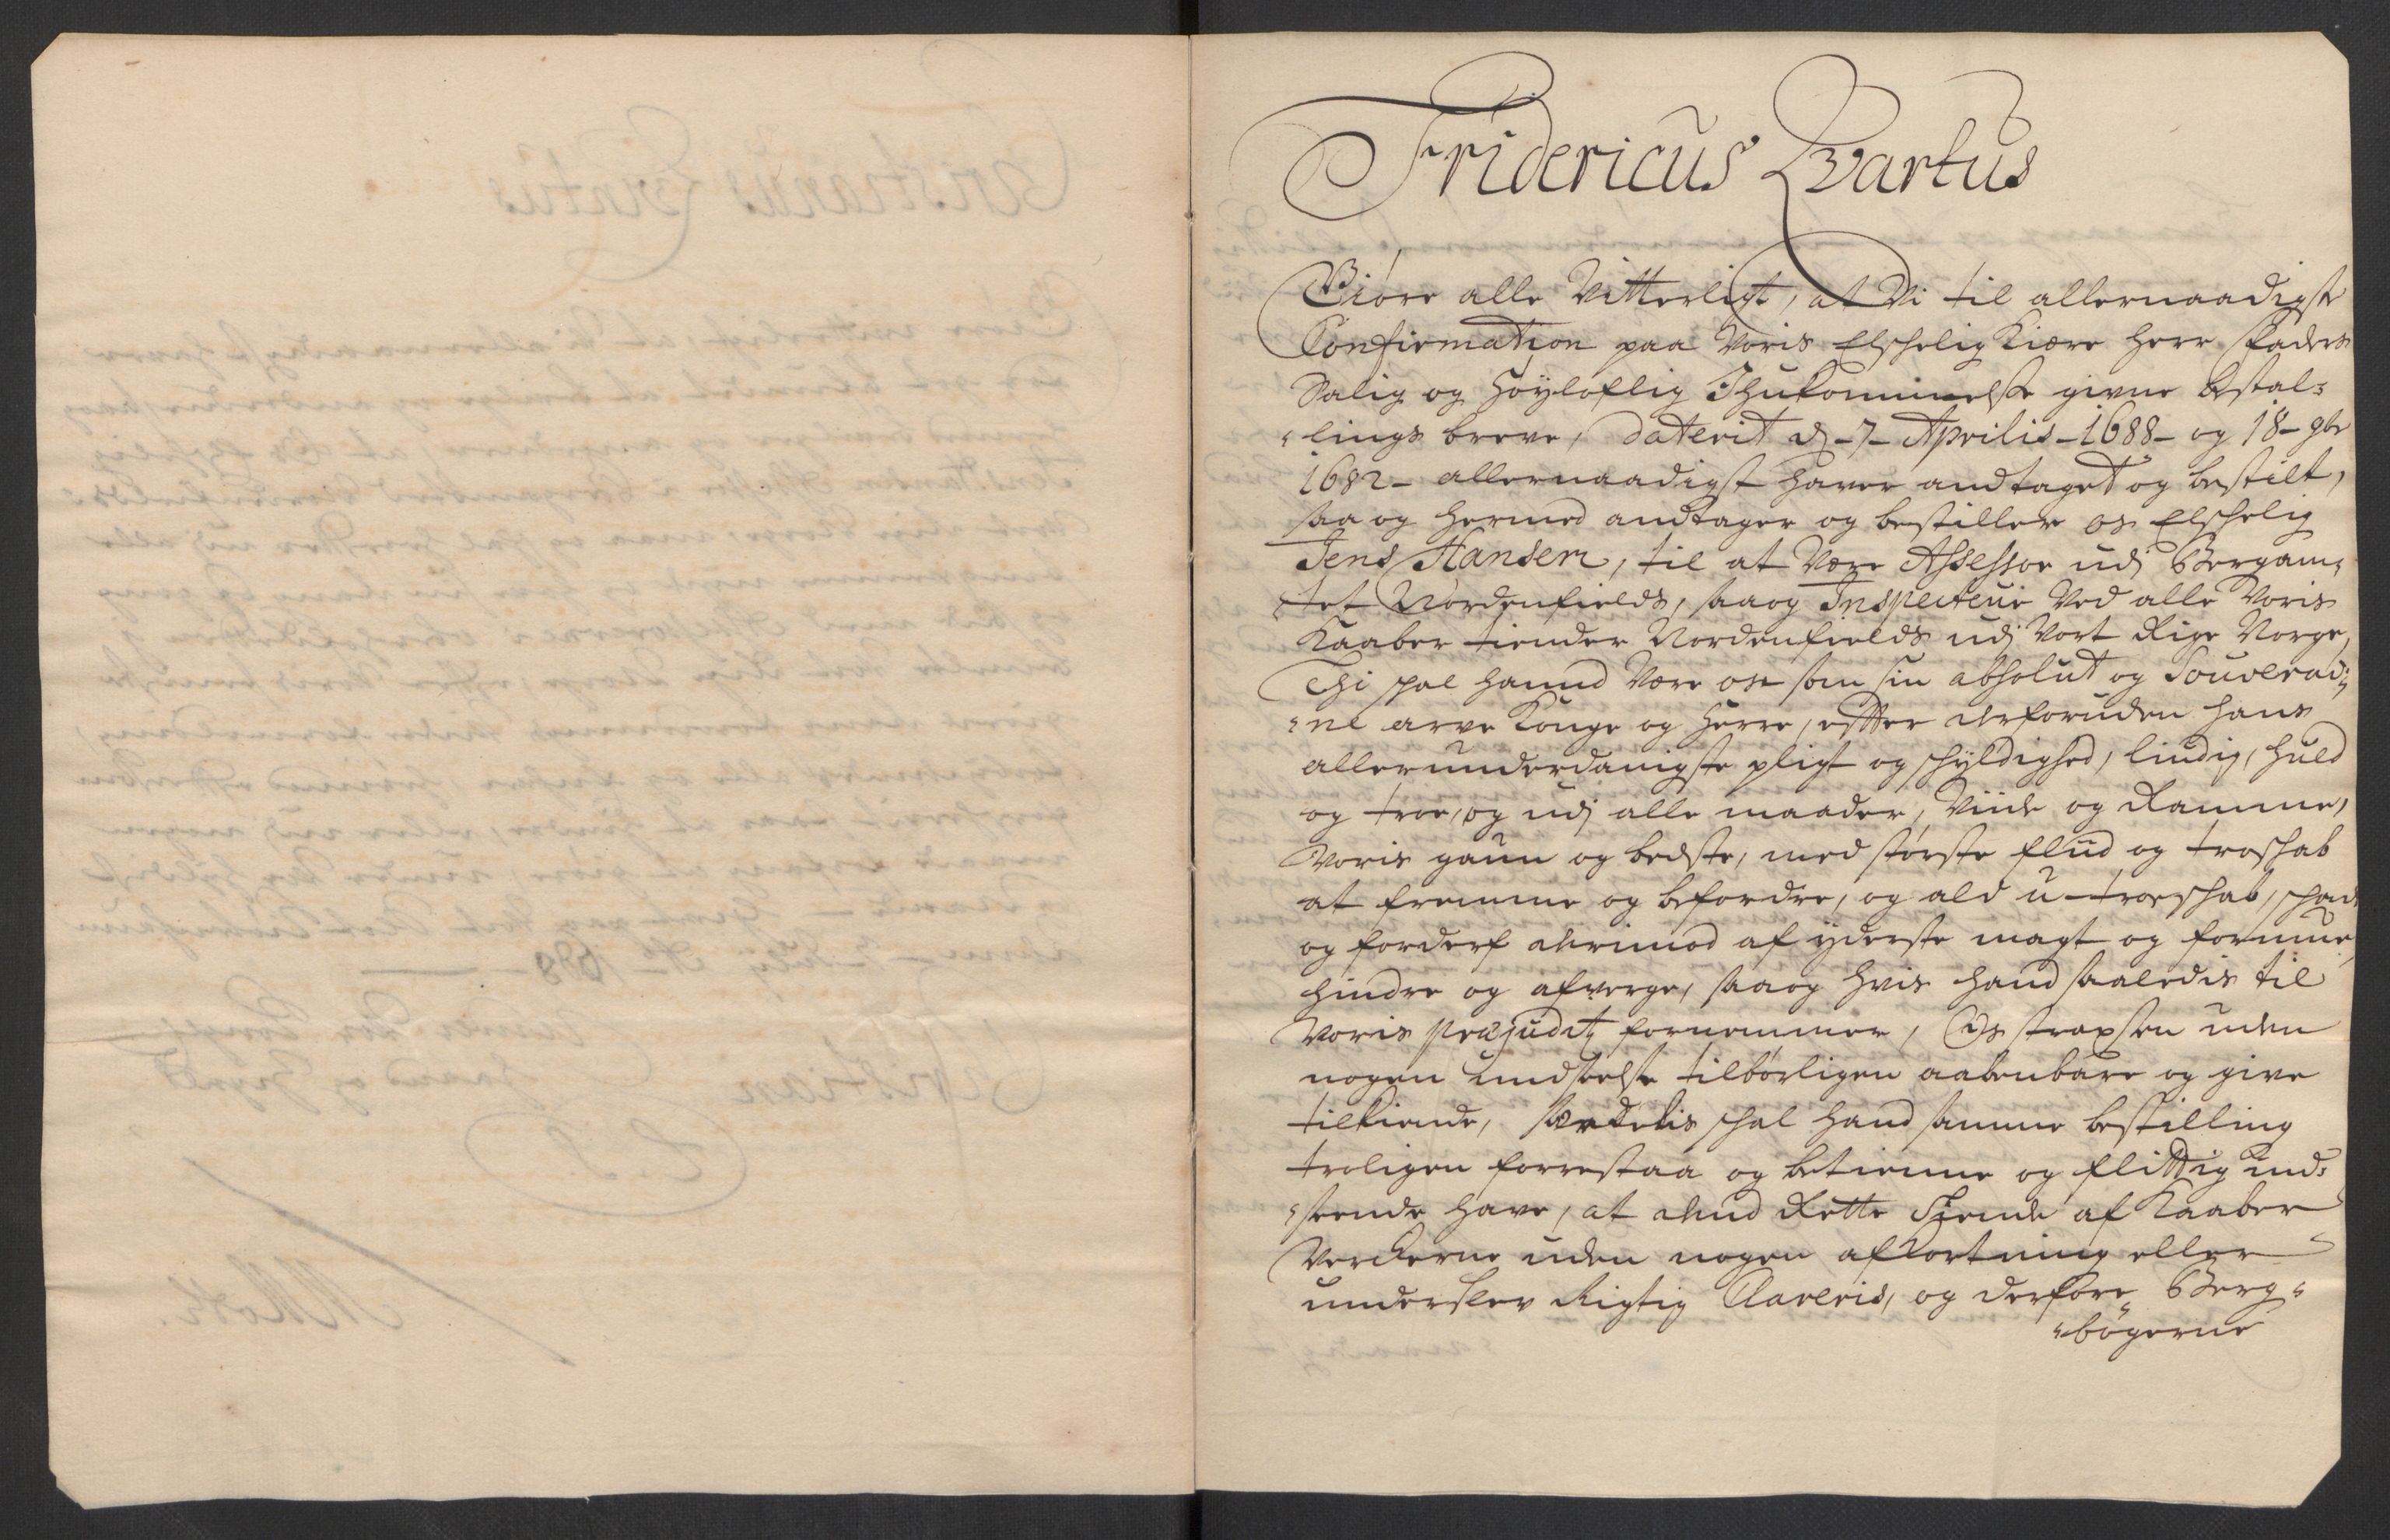 Fridericus Qvartus
Giöre alle Vitterligt, at Vi til allernaadigste
Confirmation paa Voris Elschelig Kiære Herr Faders
Salig og Höyloflig Ihukommelse givne bestal=
=lings breve, daterit d. 7 Aprilis 1688 og 18 9br
1682 allernaadigst haver andtaget og bestilt,
saa og hermed andtager og bestiller os Elschelig
Jens Hansen, til at Være Assessor udj Bergam=
=tet Nordenfields, saa og Inspecteur Ved alle Voris
Kaaber tiender Nordenfields udj Vort Rige Norge,
Thi schal hannd Være os som sin absolut og Souverai=
=ne arve Konge og Herre, efter derforuden hans
allerunderdanigste pligt og schyldighed, lindig, huld
og troe, og udj alle maader, Viide og Ramme,
Voris gavn og bedste, med störste flid og troschab
at fremme og befordre, og ald u-troeschab, schade
og forderf derimod af yderste magt og formue,
hindre og afverge, saa og hvis hand saaledis til
Voris præjuditz fornemmer, Os straxsen uden
nogen undseelse tilbörligen aabenbare og give
tilkiende, særdelis schal hand samme bestilling
troligen forrestaa og betienne og flittig ind=
=seende have, at dend Rette Tiende af Kaaber
Verckerne uden nogen afkortning eller
underslev Rigtig Clareris, og derfore Berg=
=bögerne